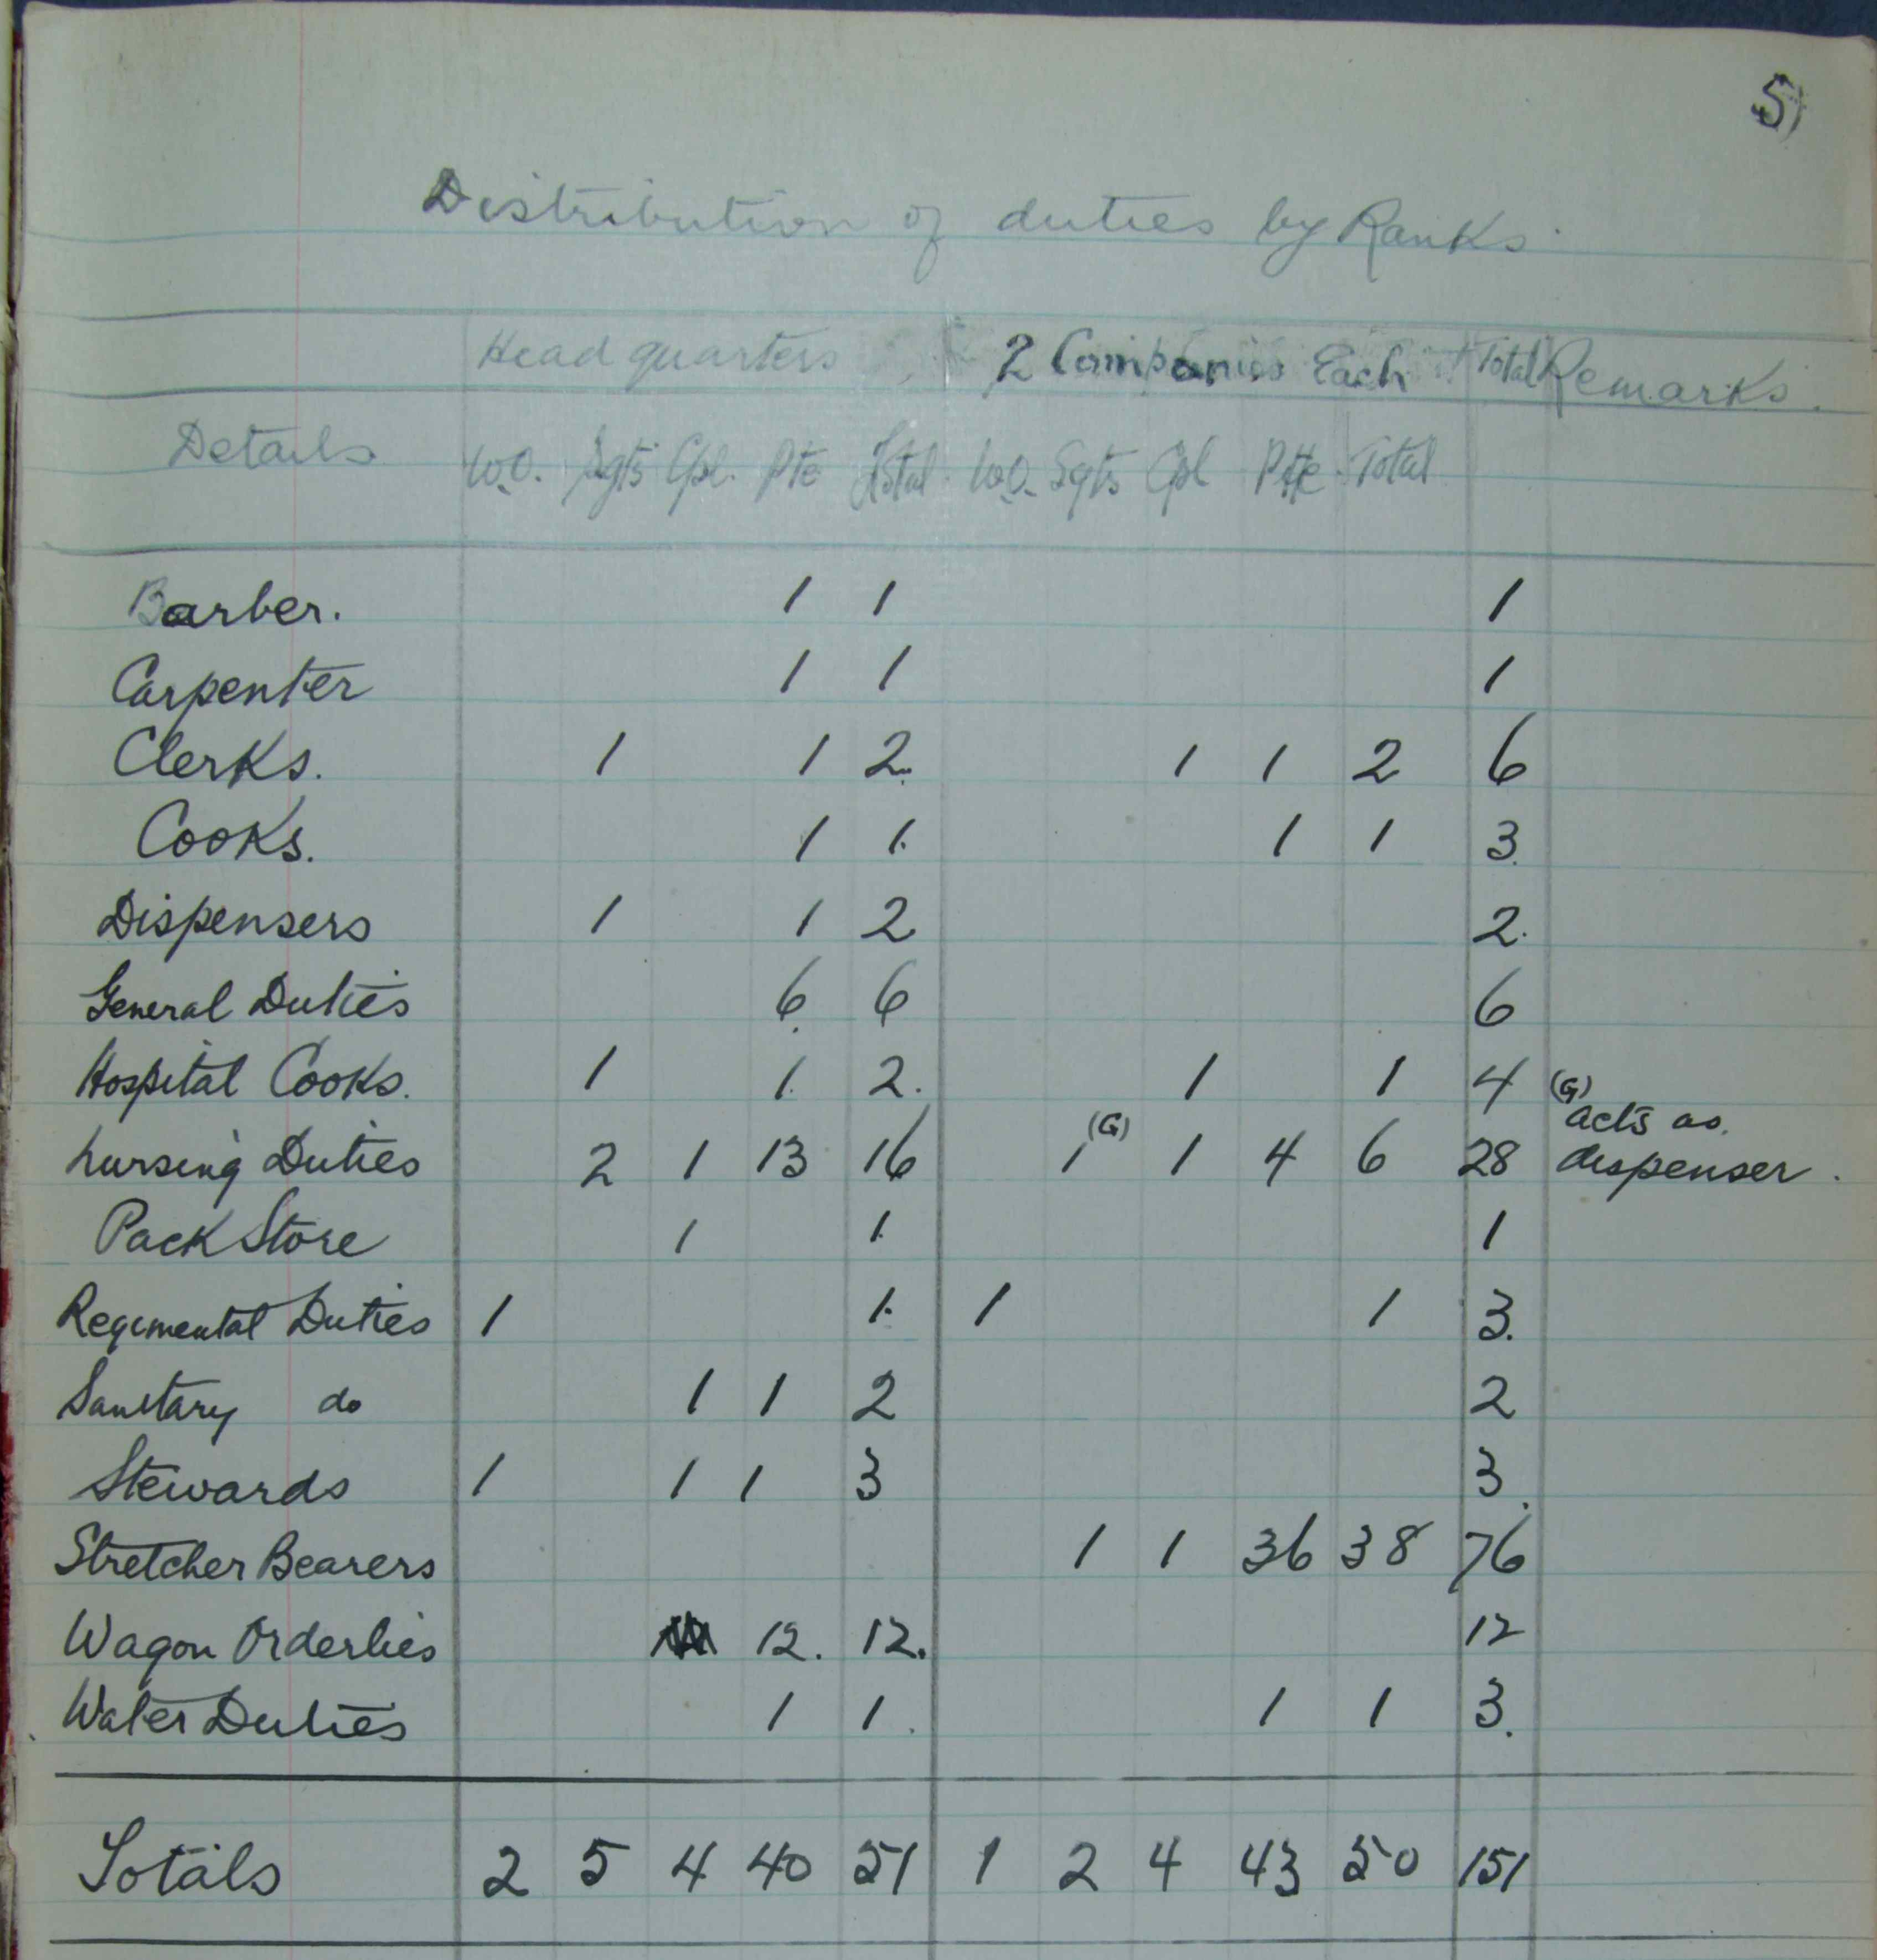 5)
Distribution of duties by Ranks.
Head quarters 2 Companies Each Total Remarks.
Details W.O. Sgts Cpl. Pte Total W.O. Sgts Cpl Pte Total
Barber. 1 1 1
Carpenter 1 1 1
Clerks. 1 1 2. 1 1 2 6
Cooks. 1 1. 1 1 3.
Dispensers 1 1 2 2.
General Duties 6. 6 6
Hospital Cooks. 1 1. 2. 1 1 4 (G)
acts as.
Nursing Duties 2 1 13 16 1(G) 1 4 6 28 dispenser.
Pack Store 1 1. 1
Regimental Duties 1 1. 1 1 3.
Sanitary do 1 1 2 2
Stewards 1 1 1 3 3.
Stretcher Bearers 1 1 36 38 76
Wagon Orderlies 12. 12. 12
Water Duties 1 1. 1 1 3.
Totals 2 5 4 40 51 1 2 4 43 50 151